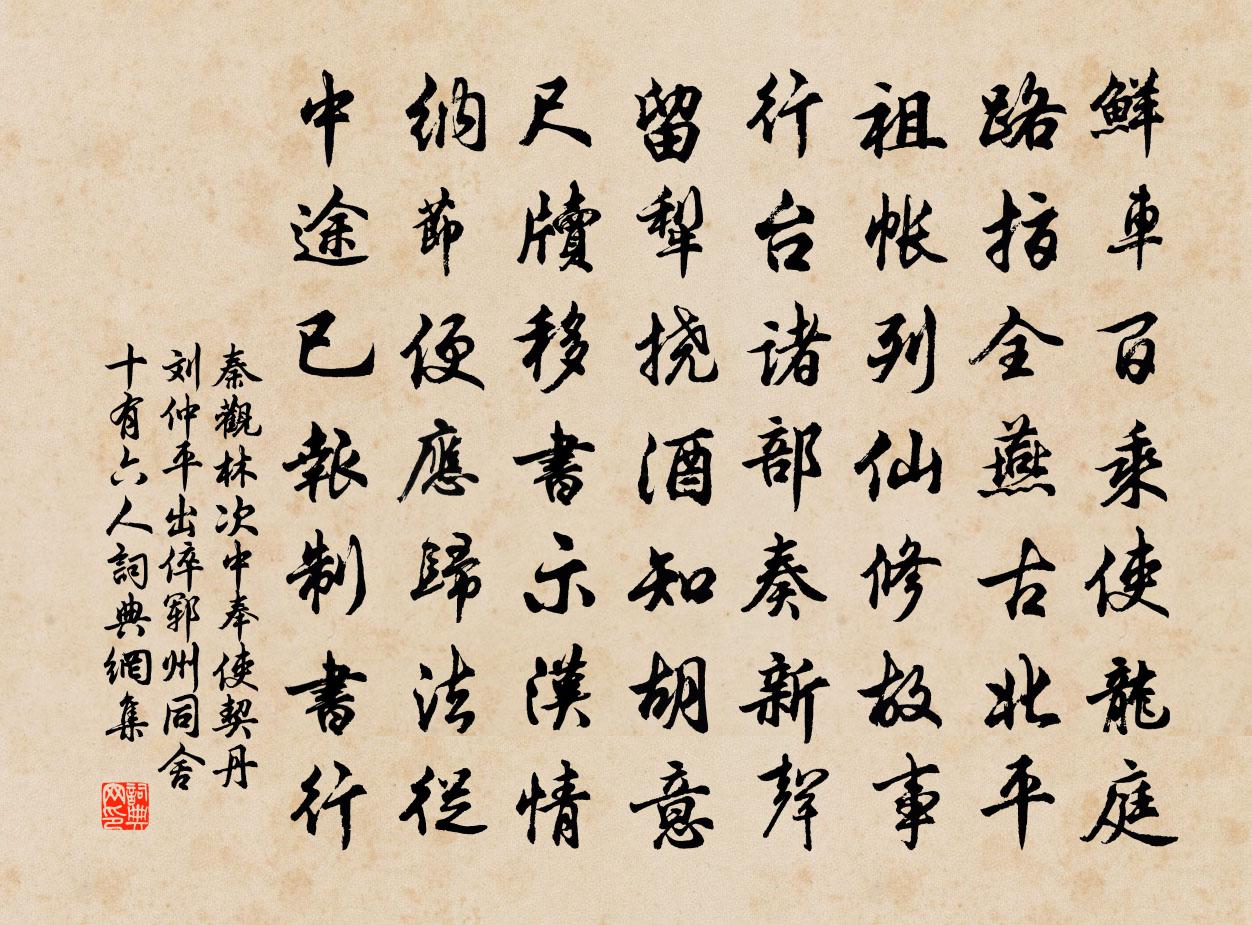 鮮車百乘使龍庭
路指全燕古北平
祖帐列仙修故事
行台诸部奏新聲
留犁挠酒知胡意
尺牘移書示漢情
纳節便應歸法從
中途已報制書行
秦觀林次中奉使契丹
刘仲平出倅郓州同舍
十有六人詞典網集
詞典网印